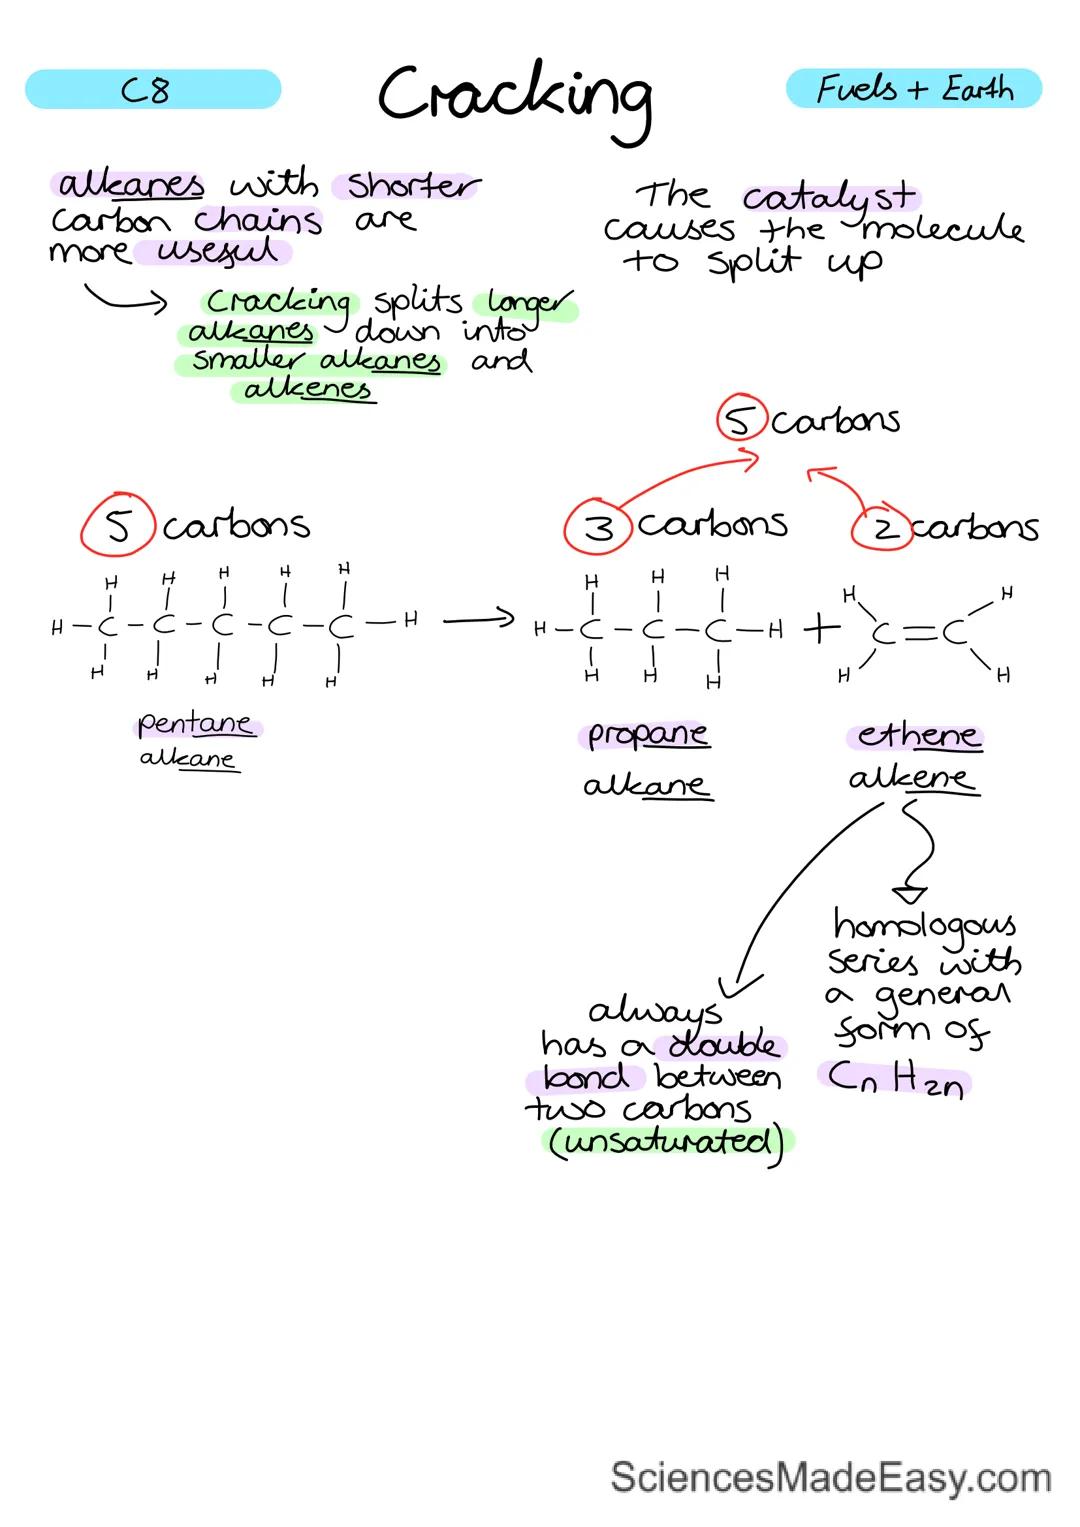 C8
Cracking
Fuels + Earth
alkanes with shorter
carbon chains are
more useful
Cracking splits longer
alkanes down into
smaller alkanes and
alkenes
The catalyst
causes the molecule
to split up
5 carbons
5 carbons
3 carbons
2 carbons
H H H H H
H-C-C-C-C-C-H
H H H H H
pentane
alkane
H H H
H-C-C-C-H
H H H
propane
alkane
+
H H
C=C
H H
ethene
alkene
always
has a double
bond between
two carbons
(unsaturated)
homologous
series with
a general
form of
Cn H2n
SciencesMadeEasy.com